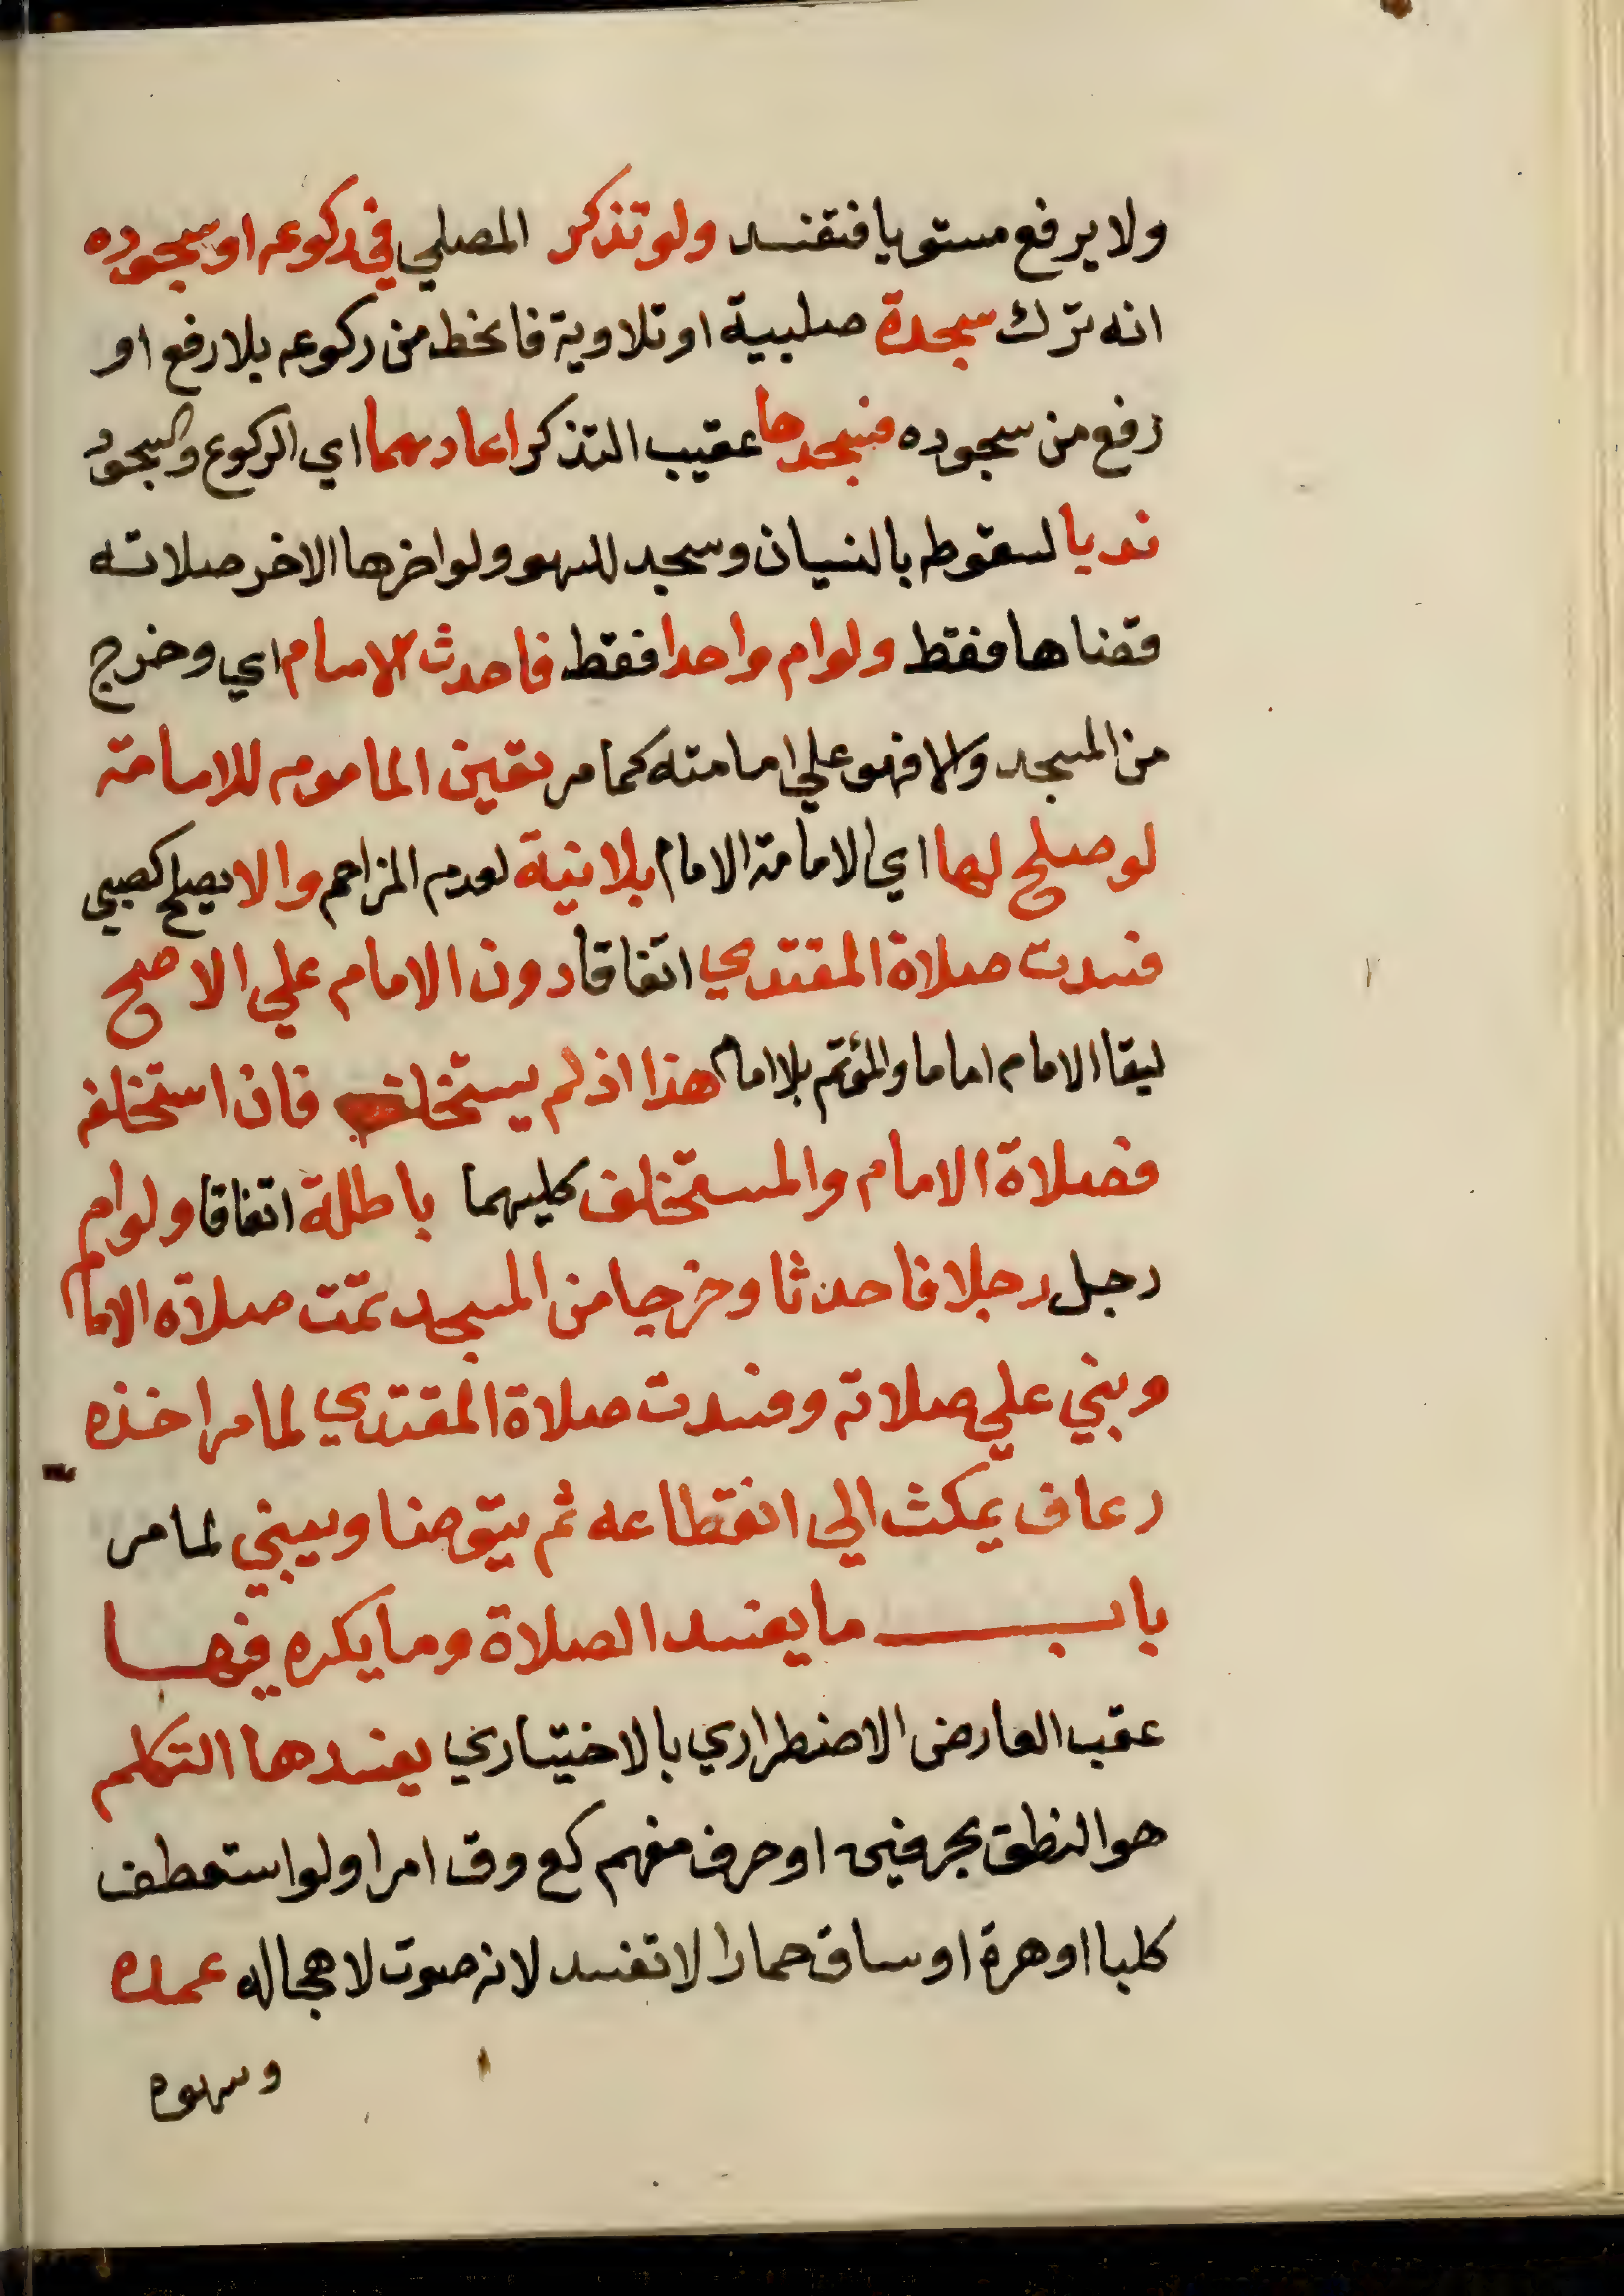 ولا يرفع مستويا فتفسد ولو تذكر المصلي في ركوعه او سجوده
انه ترك سجدة صلبية او تلاوية فانحط من ركوعه بلا رفع او
رفع من سجوده فسجدها عقيب التذكر اعادهما اي الركوع والسجود
ندبا لسقوطه بالنسيان وسجد للسهو ولو اخرها الاخر صلاته
قضاها فقط ولو ام واحدا فقط فاحدث الامام اي وخرج
من المسجد والا فهو علي امامته كما مر تعين الماموم للامامة
لو صلح لها اي لامامة الامام بلا نية لعدم المزاحم والا يصلح كصبي
فسدت صلاة المقتدي اتفاقا دون الامام علي الاصح
لبقا الامام اماما والمؤتم بلا امام هذا اذ لم يستخلف فان استخلفه
فصلاة الامام والمستخلف كليهما باطلة اتفاقا ولو ام
رجل رجلا فاحدثا وخرجا من المسجد تمت صلاة الامام
وبني علي صلاته وفسدت صلاة المقتدي لما مر اخذه
رعاف يمكث الي انقطاعه ثم يتوضا ويبني لما مر
باب ما يفسد الصلاة وما يكره فيها
عقب العارض الاضطراري بالاختياري يفسدها التكلم
هو النطق بحرفين او حرف مفهم كع وق امرا ولو استعطف
كلبا او هرة او ساق حمارا لا تفسد لانه صوت لا هجا له عمده
وسهوه